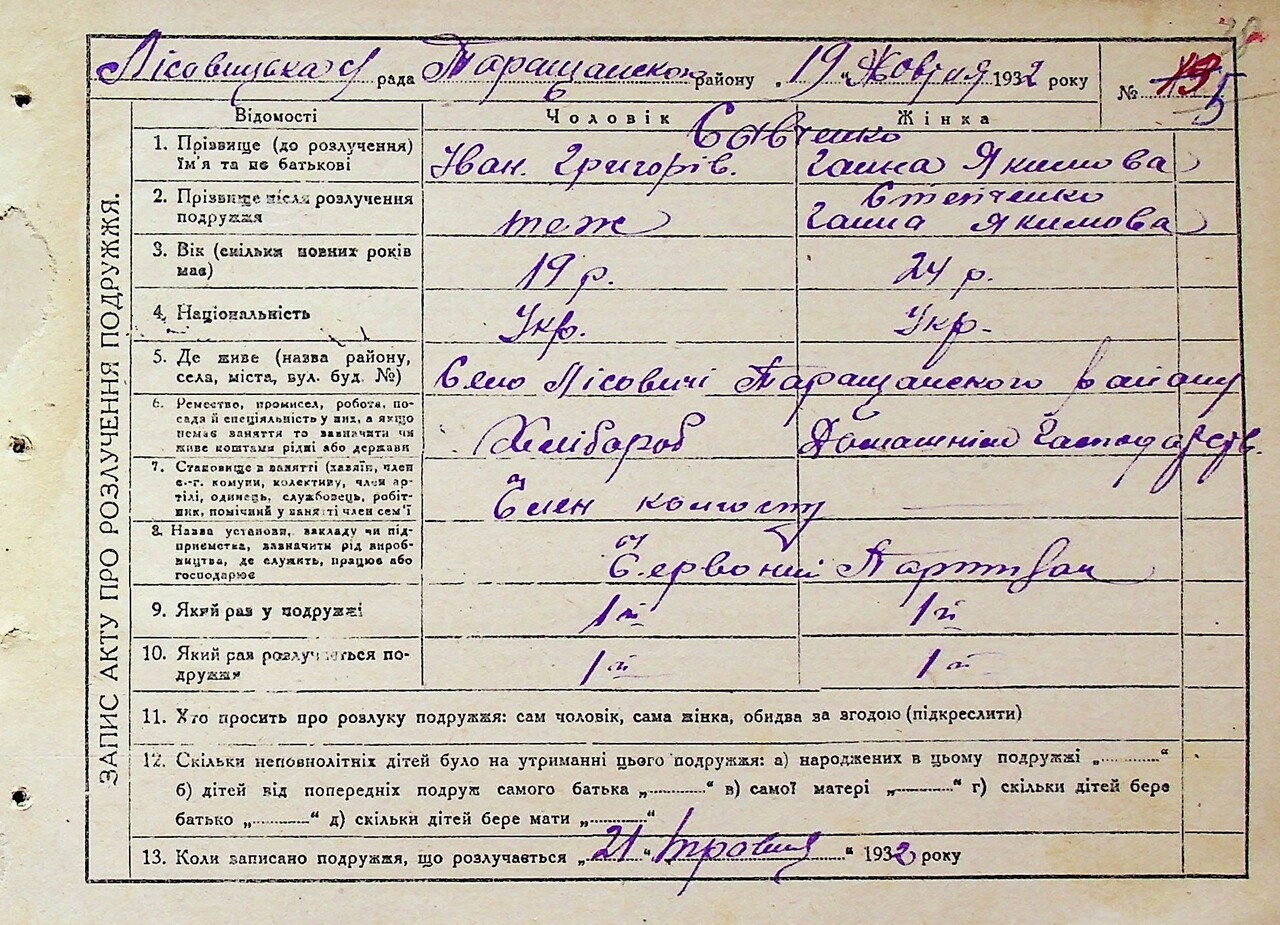 Лісовицька с/ рада Таращанського району „ 19 “ Жовтня 1932 року
№ 5
Відомості Чоловік Жінка
Савченко
1. Прізвище (до розлучення) Ім'я та по батькові Іван. Григорів. Ганна Якимова
2. Прізвище після розлучення подружжя теж Степченко Ганна Якимова
3. Вік (скільки повних років має) 19 р. 24 р.
4. Національність Укр. Укр.
5. Де живе (назва району, села, міста, вул. буд. №) Село Лісовичі Таращанского району
6. Ремество, промисел, робота, по-
сада й спеціяльність у них, а якщо
немає заняття то зазначити чи
живе коштами рідні або держави Хлібороб Домашнім Господарств.
7. Становище в занятті (хазяїн, член
с.-г. комуни, колективу, член ар-
тілі, одинець, службовець, робіт-
ник, помічний у занятті член сем'ї Член колгоспу —
8. Назва установи, закладу чи під-
приємства, зазначити рід вироб-
ництва, де служить, працює або
господарює Червоний Партизан
9. Який раз у подружжі 1й 1й
10. Який раз розлучається по-
дружжя 1й 1й
11. Хто просить про розлуку подружжя: сам чоловік, сама жінка, обидва за згодою (підкреслити)
12. Скільки неповнолітніх дітей було на утриманні цього подружжя: а) народжених в цьому подружжі „..........“
б) дітей від попередніх подруж самого батька „..........“ в) самої матері „..........“ г) скільки дітей бере
батько „..........“ д) скільки дітей бере мати „..........“
13. Коли записано подружжя, що розлучається „ 21 “ Травня “ 1932 року
ЗАПИС АКТУ ПРО РОЗЛУЧЕННЯ ПОДРУЖЖЯ.